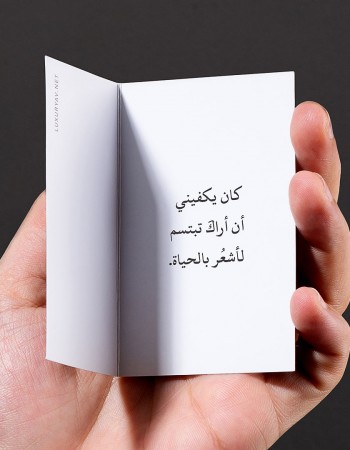 كان يكفيني
أن أراكَ تبتسم
لأشعُر بالحياة.